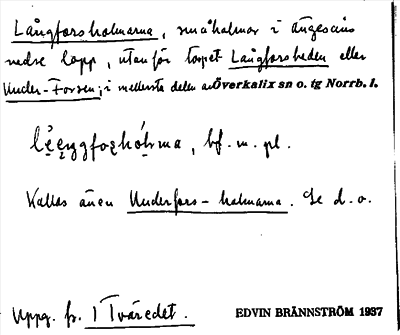 Långforsholmarna, småholmar i Ängesåns
nedre lopp, utanför torpet Långforsheden eller
Under-Forsen; i mellersta delen av Överkalix sn o. tg Norrb. l.
bf. m. pl.
Kallas även Underfors-holmarna. Se d. o.
Uppg. fr. 1 Tväredet.
EDVIN BRÄNNSTRÖM 1937